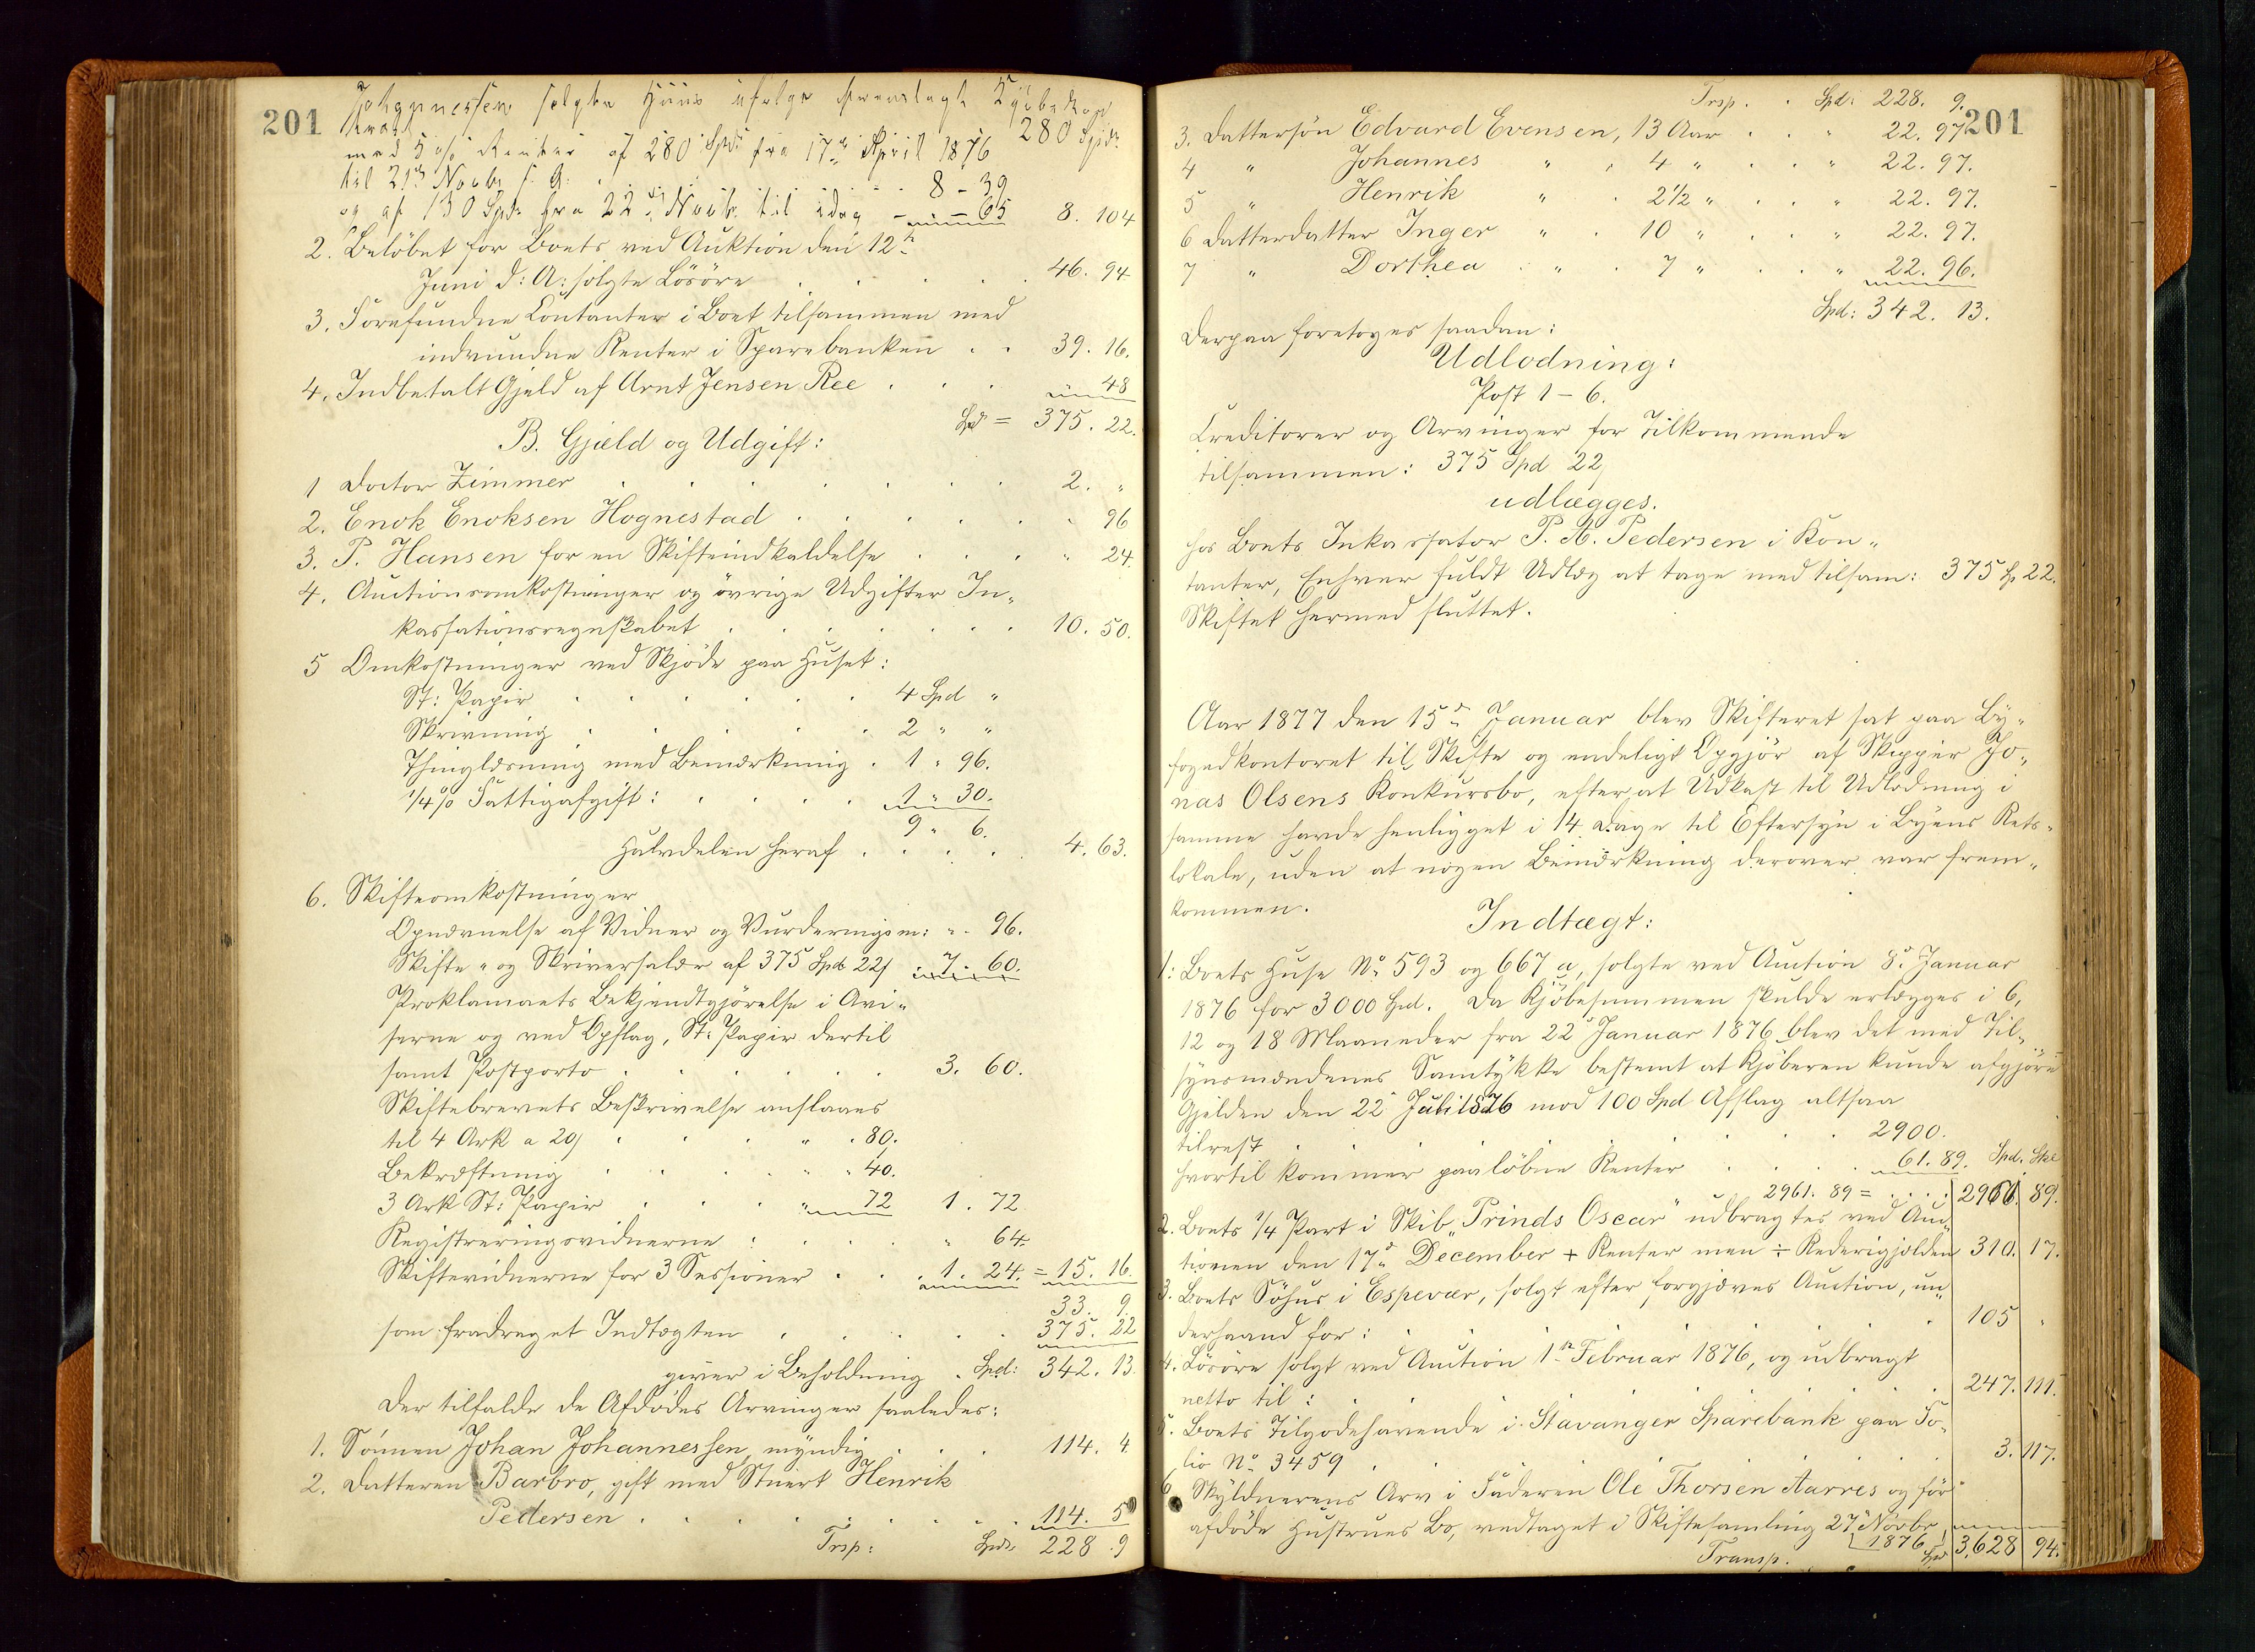 201
Johannessen solgte Huus ifølge fremlagt Kjøbekon
trakt 280 Spd:
med 5 % Renter af 280 Spd: fra 17de April 1876
til 21de Novbr s. A: . . . . 8 - 39
og af 130 Spd: fra 22de Novb: til idag - " - 65 8. 104
2. Beløbet for Boets ved Auktion den 12te
Juni d: A: solgte Løsøre . . . . 46. 94
3. Forefundne Contanter i Boet tilsammen med
indvundne Renter i Sparebanken . . 39. 16.
4. Indbetalt Gjeld af Arnt Jensen Ree . . . " 48
Spd = 375. 22.
B. Gjæld og Udgift:
1 Doctor Zimmer . . . . . . 2. "
2. Enok Enoksen Hognestad . . . . . " 96
3. P. Hansen for en Skifteindkaldelse . . . " 24.
4. Auctionsomkostninger og øvrige Udgifter In-
kassationsregnskabet . . . . . . 10. 50.
5 Omkostninger ved Skjøde paa Huset:
St: Papir . . . . . 4 Spd "
Skrivning . . . . . 2 " "
Thinglæsning med Bemærkning . 1 " 96.
1/4 % Fattigafgift: . . . . 1 " 30.
9 " 6.
Halvdelen heraf . . . . 4. 63.
6. Skifteomkostninger
Opnævnelse af Vidner og Vurderingsm: " . 96.
Skifte- og Skriversalær af 375 Spd 22 . 7. 60.
Proklamaets Bekjendtgjørelse i Avi-
serne og ved Opslag, St: Papir dertil
samt Postporto . . . . . 3. 60.
Skiftebrevets Beskrivelse anslaaes
til 4 Ark a 20 . . . . " . 80.
Bekræftning . . . . " . 40.
3 Ark St: Papir . . . . " 72 1. 72
Registreringsvidnerne . . . . " 64.
Skiftevidnerne for 3 Sessioner . . . 1. 24. = 15. 16.
33. 9.
som fradraget Indtægten . . . . 375. 22
giver i Beholdning . Spd: 342. 13.
Der tilfalde de Afdødes Arvinger saaledes:
1. Sønnen Johan Johannessen, myndig . . . 114. 4.
2. Datteren Barbro, gift med Stuert Henrik
Pedersen . . . . . . . 114. 5
Trsp: Spd: 228. 9
201
Trsp. . Spd: 228. 9.
3. Dattersøn Edvard Evensen, 13 Aar . . " 22. 97
4 " Johannes " . 4 " . . " 22. 97.
5 " Henrik " . 2 1/2 " . . " 22. 97.
6 Datterdatter Inger " . 10 " . . " 22. 97.
7 " Dorthea . " . 7 " . . " 22. 96.
Spd: 342. 13.
Derpaa foretoges saadan:
Udlodning:
Post 1 - 6.
Creditorer og Arvinger for Tilkommende
tilsammen: 375 Spd 22
udlægges.
hos Boets Inkassator P. A. Pedersen i Kon-
tanter, Enhver fuldt Udlæg at tage med tilsam: 375 Sp 22.
Skiftet hermed sluttet.
Aar 1877 den 15de Januar blev Skifteret sat paa By-
fogedkontoret til Skifte og endeligt Opgjør af Skipper Jo-
nas Olsens Konkursbo, efter at Udkast til Udlodning i
samme havde henligget i 14 Dage til Eftersyn i Byens Rets-
lokale, uden at nogen Bemærkning derover var frem-
kommen.
Indtægt:
1: Boets Huse No 593 og 667 a, solgte ved Auction 8de Januar
1876 for 3000 Spd. Da Kjøbesummen skulde erlægges i 6,
12 og 18 Maaneder fra 22 Januar 1876 blev det med Til-
synsmændenes Samtykke bestemt at Kjøberen kunde afgjøre
Gjelden den 22 Juli 1876 mod 100 Spd Afslag altsaa
tilrest . . . . . . . 2900.
hvortil kommer paaløbne Renter . . . . 61. 89. Spd. Skl
2961. 89 = . . . . 2961. 89.
2. Boets 1/4 Part i Skib "Prinds Oscar" udbragtes ved Auc-
tionen den 17de December + Renter men ÷ Rederigjælden 310. 17.
3. Boets Søhus i Espevær, solgt efter forgjæves Auction, un-
derhaand for: . . . . . . . 105 "
4. Løsøre solgt ved Auction 1ste Februar 1876, og udbragt
netto til: . . . . . . . 247. 111.
5. Boets Tilgodehavende i Stavanger Sparebank paa Fo-
lio No 3459 . . . . . . . 3. 117.
6 Skyldnerens Arv i Faderen Ole Thorsen Aarres og før
afdøde Hustrues Bo, vedtaget i Skiftesamling 27 Novbr,
1876
Transp. . Spd 3,628 94.